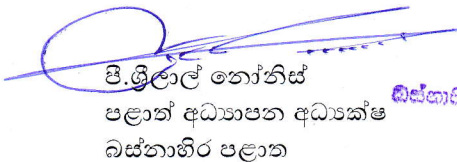 පී.ශ්‍රීලාල් නෝනිස්
පළාත් අධ්‍යාපන අධ්‍යක්ෂ
බස්නාහිර පළාත